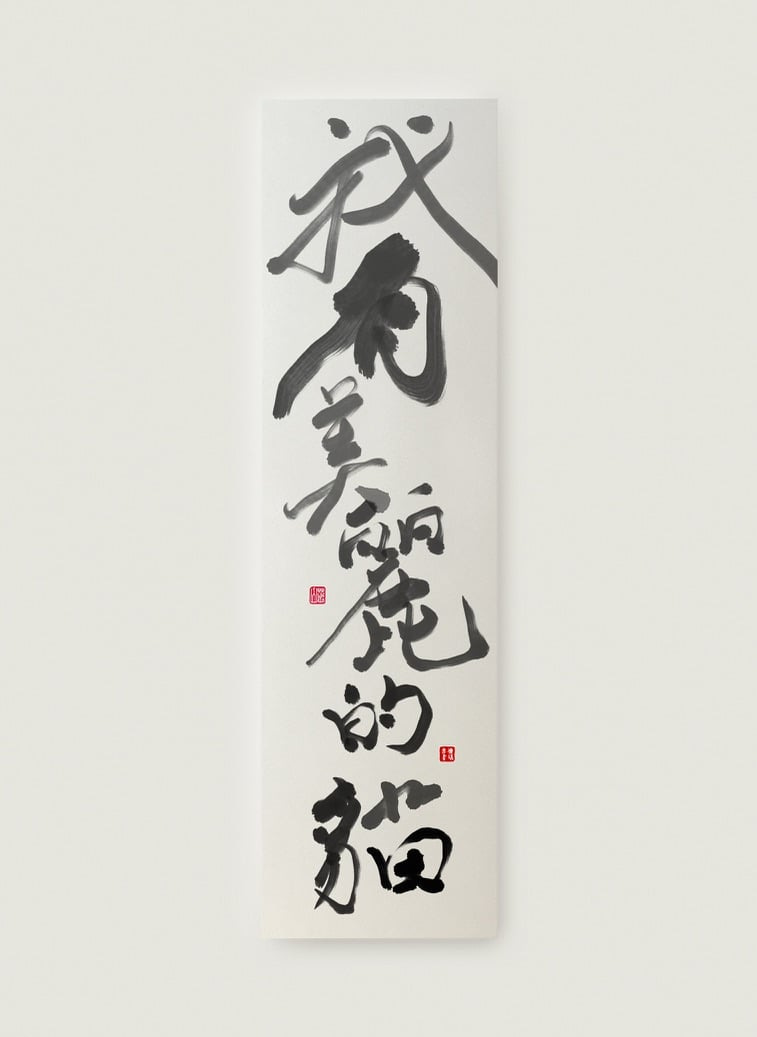 我有美麗的貓